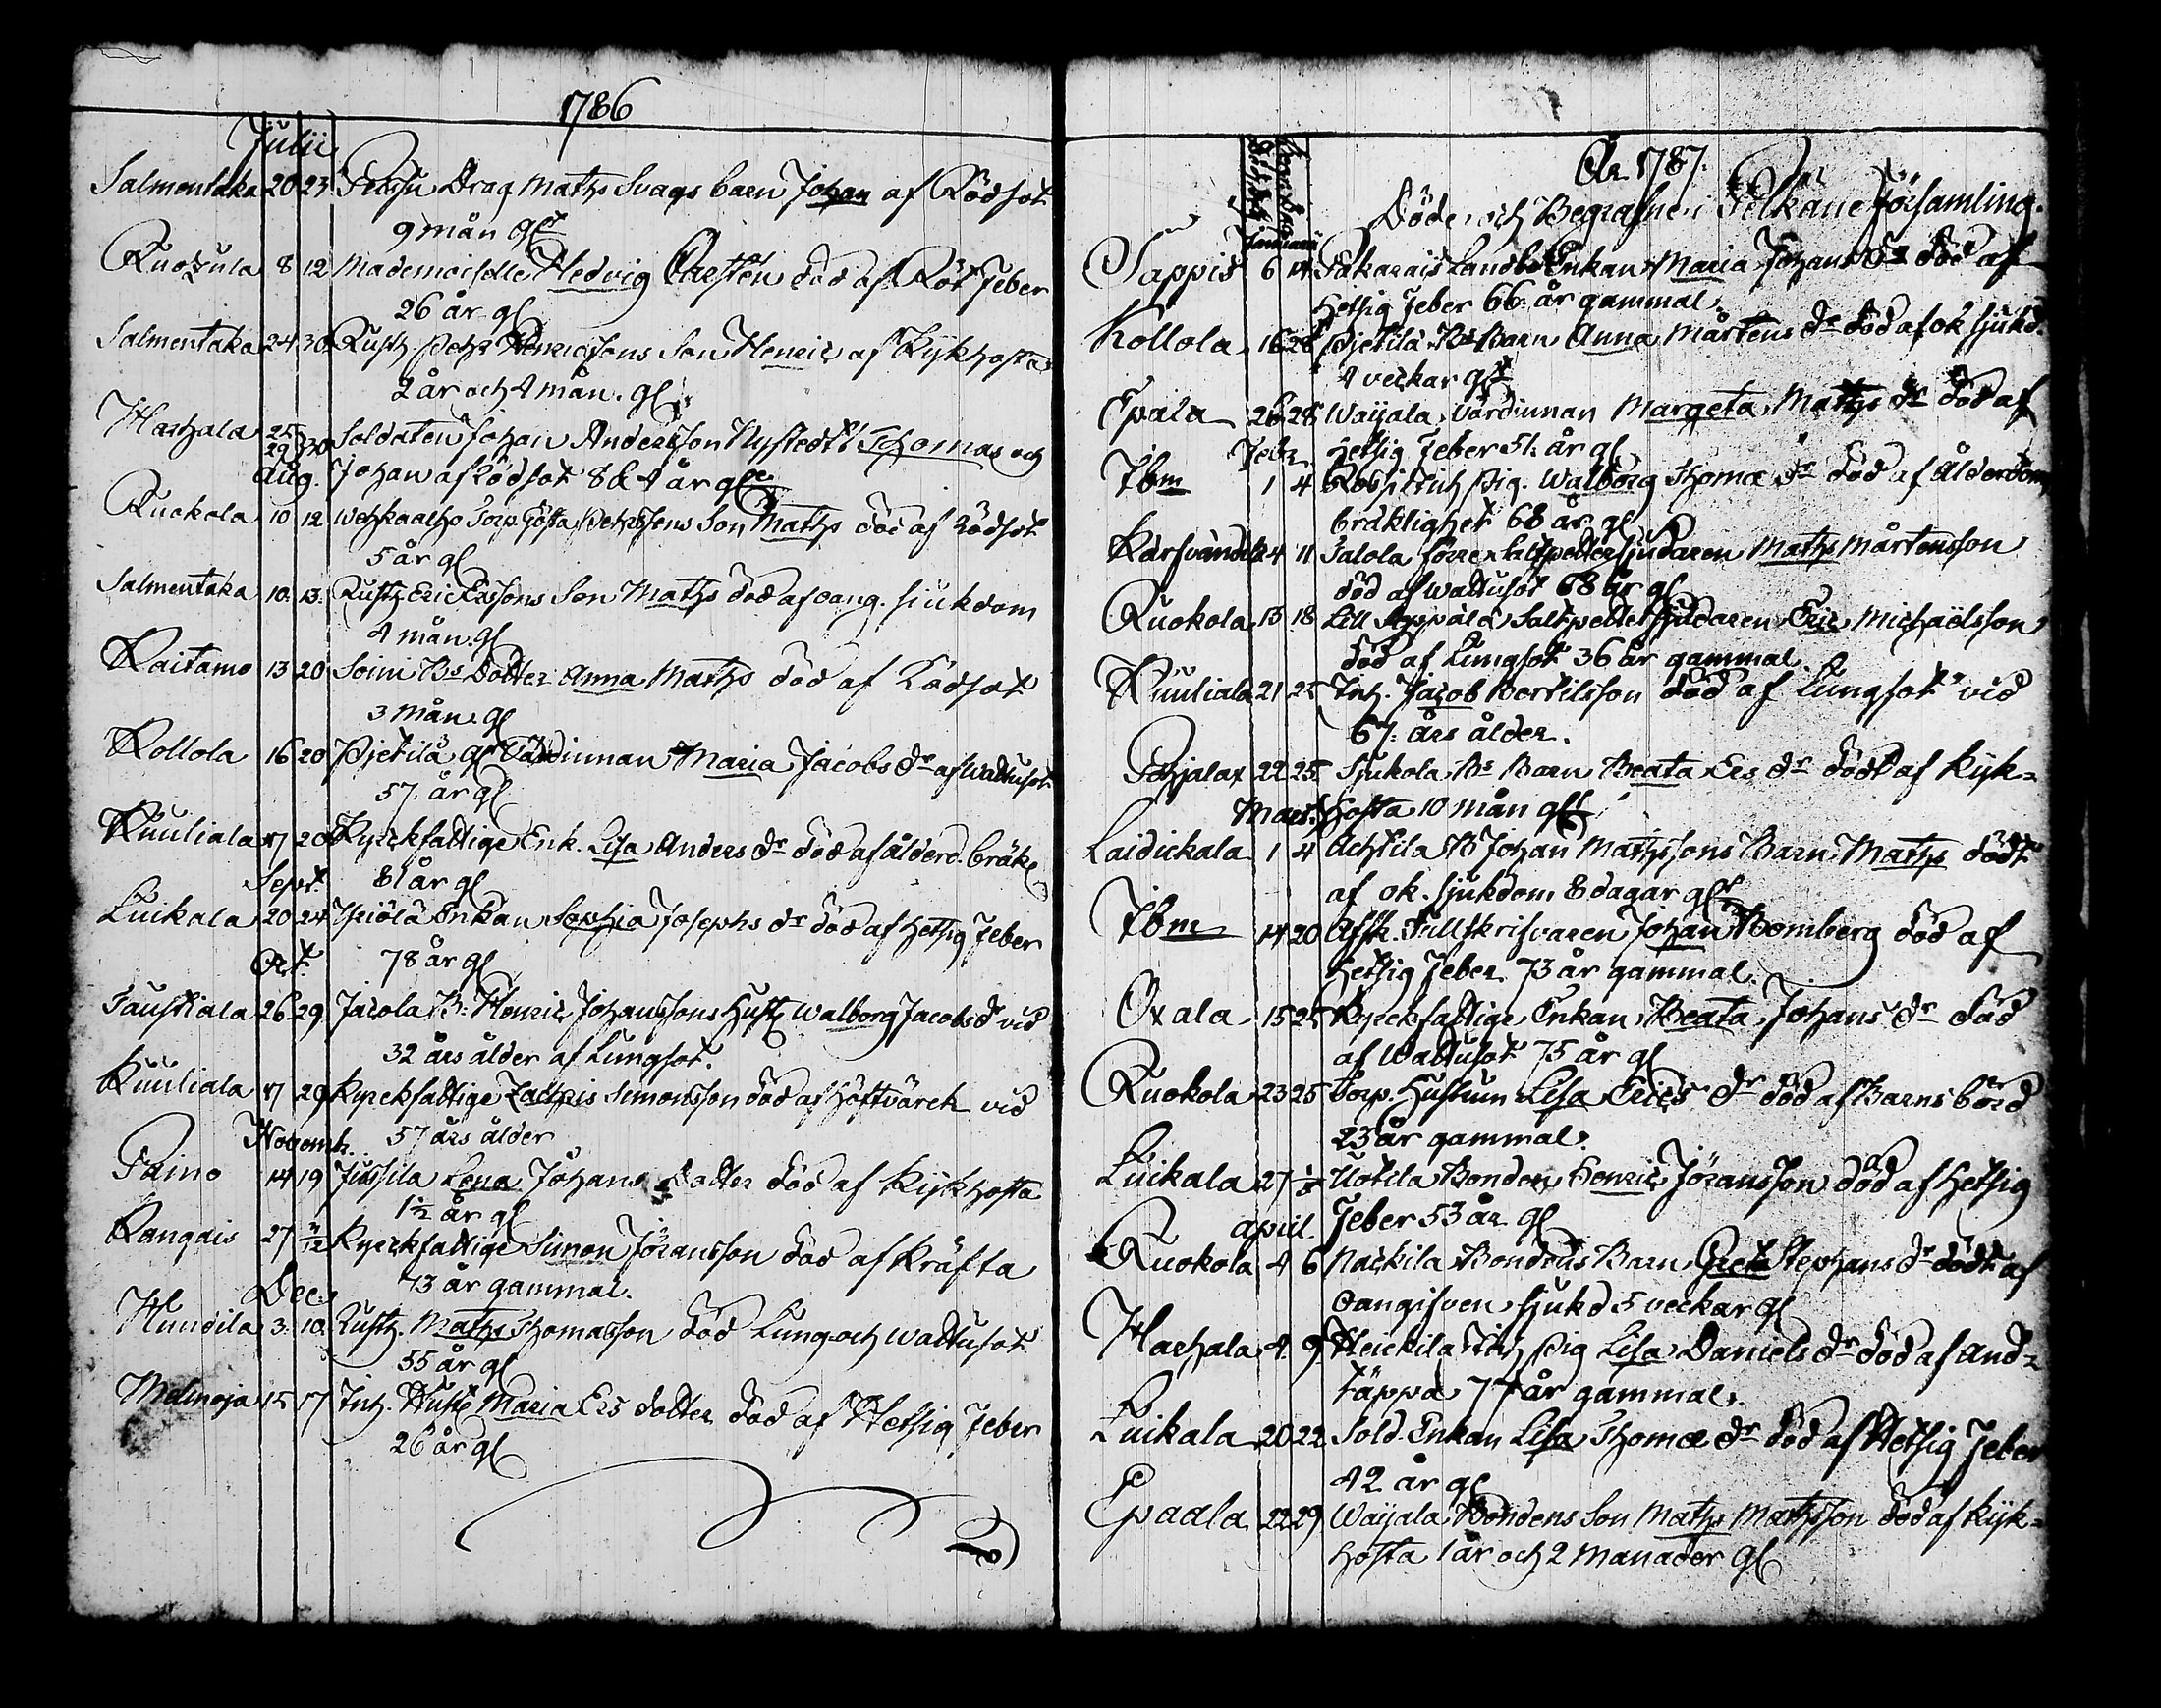 1786
Julii
Salmentaka 20 23 Perssu Drag Maths Svags barn Johan af Rödsot
9 mån glt
Ruokula 8 12 Mademoiselle Hedvig Carstén död af Röt Feber
26 år gl
Salmentaka 24 30 Rusth. Petr Henricssons Son Henric af Kikhosta
2 år och 4 mån. gl
Harhala 25 29 30 Soldaten Johan Andersson Nystedts Thomas och
Aug. Johan af Rödsot 8 & 4 år gle
Ruokola 10 12 Torp. Gösta Petersons Son Maths död af Rödsot
5 år gl
Salmentaka 10. 13. Rusth Eric Erssons Son Maths död af oang. siukdom
4 mån. gl
Raitamo 13 20 Soini Bs Dotter Anna Maths död af Rödsot
3 mån. gl
Kollola 16 20 Pjetilä gl Värdinnan Maria Jacobs dr af Wattusot
57. år gl
Kuuliala 17 20 Kyrckfattige Enk. Lisa Anders dr död af ålderd. bräkl
Sept. 81 år gl
Luikala 20 24 Yriölä Enkan Sophia Josephs dr död af Hetsig Feber
Oct. 78 år gl
Tauskiala 26 29 Jacola B. Henric Johanssons Hust Walborg Jacobs d vid
32 års ålder af Lungsot.
Kuuliala 17 29 Kyrckfattige Zachris Simonsson död af Höftvärck vid
Novemb. 57 års ålder
Paino 14 19 Jussila Lena Johans Dotter död af Kikhosta
1½ år gl
Kangais 27 3/12 Kyrckfattige Simon Jöransson död af Kräfta
Dec. 73 år gammal.
Hundila 3. 10. Rusth. Maths Thomasson död Lung och Wattusot
55 år gl
Mälinoja 15 17 Inh. Hust Maria Ers dotter död af Hetsig Feber
26 år gl
År 1787.
Döde och Begrafne i Pelkäne Församling.
Januarii
Sappis 6 14 Sakarais Landbo Enkan Maria Johans dr död af
Hetsig Feber 66 år gammal.
Kollola 16 28 Pjetilä Bs Barn Anna Mårtens dr död af ok sjukd.
4 veckar glt
Epala 26 28 Waijala Värdinnan Margeta Maths dr död af
Febr. Hetsig Feber 51. år gl
Ibm 1 4 Pig. Walborg Thomæ dr död af Ålderdoms
bräklighet 68 år gl
4 11 Salola förre Saltpettersjudaren Maths Mårtensson
död af Wattusot 68 år gl
Ruokola 13 18 Lill Seppälä Saltpettersjudaren Eric Michaelsson
död af Lungsot 36 år gammal.
Kuuliala 21 25 Inh. Jacob Bertilsson död af Lungsot vid
67. års ålder.
Pohjalax 22 25 Sjukola Bs Barn Beata Ers dr dödt af Kik-
Mart. hosta 10 mån glt
Laidickala 1 4 Achtila B Johan Mathssons Barn Maths dödt
af ok. sjukdom 8 dagar glt
Ibm 14 20 Afsk. Fältskrifvaren Johan Bomberg död af
Hetsig Feber 73 år gammal.
Oxala 15 25 Kyrckfattige Enkan Beata Johans dr död
af Wattusot 75 år gl
Ruokola 23 25 Torp. Hustrun Lisa Erics dr död af Barnsbörd
23 år gammal.
Luikala 27 Uotila Bonden Henric Jöransson död af Hetsig
April. Feber 53 år gl
Ruokola 4 6 Nackila Bondens Barn Greta Stephans dr dödt af
Oangifven sjukd 5 veckar gl
Harhala 4. 9. Heickila Inh Pig Lisa Daniels dr död af And-
täppa 77 år gammal.
Luikala 20 22 Sold. Enkan Lisa Thomæ dr död af Hetsig Feber
42 år gl
Epaala 22 29 Waijala Bondens Son Maths Mathsson död af Kik-
hosta 1 år och 2 månader gl